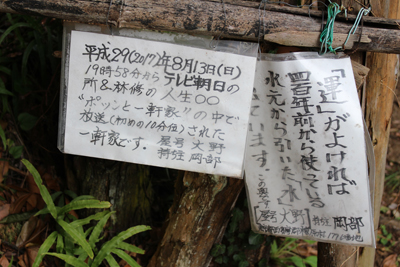 平成29(2017)年8月13日(日)
19時58分から テレビ朝日の
所&林修の 人生○○
"ポツンと一軒家"の中で
放送(初めの10分位)された
一軒家です。 屋号 大野
持主 岡部
「運」がよければ
四百年前から使ってる
水元から引いた水
ています。
屋号 大野 持主 岡部